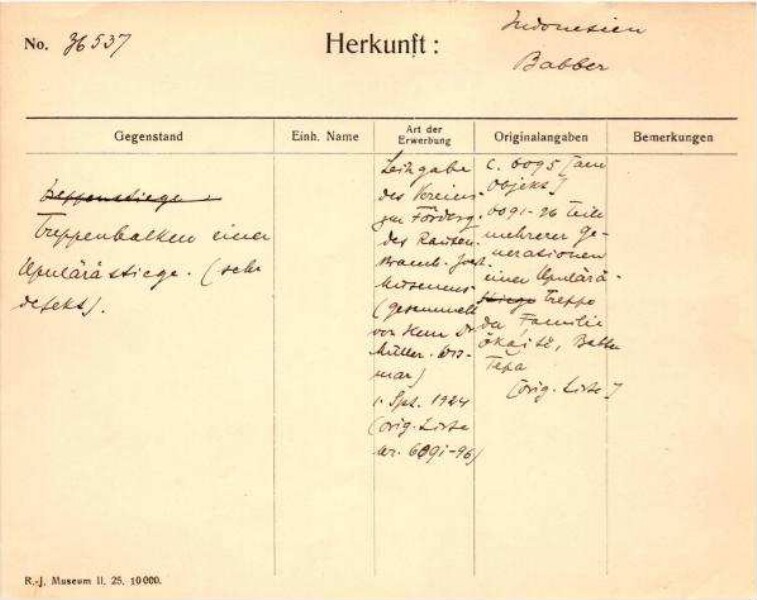 No. 36537
Herkunft:
Indonesien
Babber
Gegenstand
Einh. Name
Art der Erwerbung
Originalangaben
Bemerkungen
Treppenstiege
Treppenbalken einer
Upulärästiege. (sehr
defekt).
Leihgabe
des Vereins
zur Förderg.
des Rauten.
Joest
Museums
(gesammelt
von Herrn Dr
Müller-Wis-
mar)
1. Spt. 1924
(orig. Liste
Nr. 6091-96)
C. 6095 [am
Objekt]
6091-96 Teile
mehrerer Ge-
nerationen
einer Upulärä-
stiege Treppe
der Familie
Babber
Tepa
[orig. Liste]
R.-J. Museum II. 25. 10000.